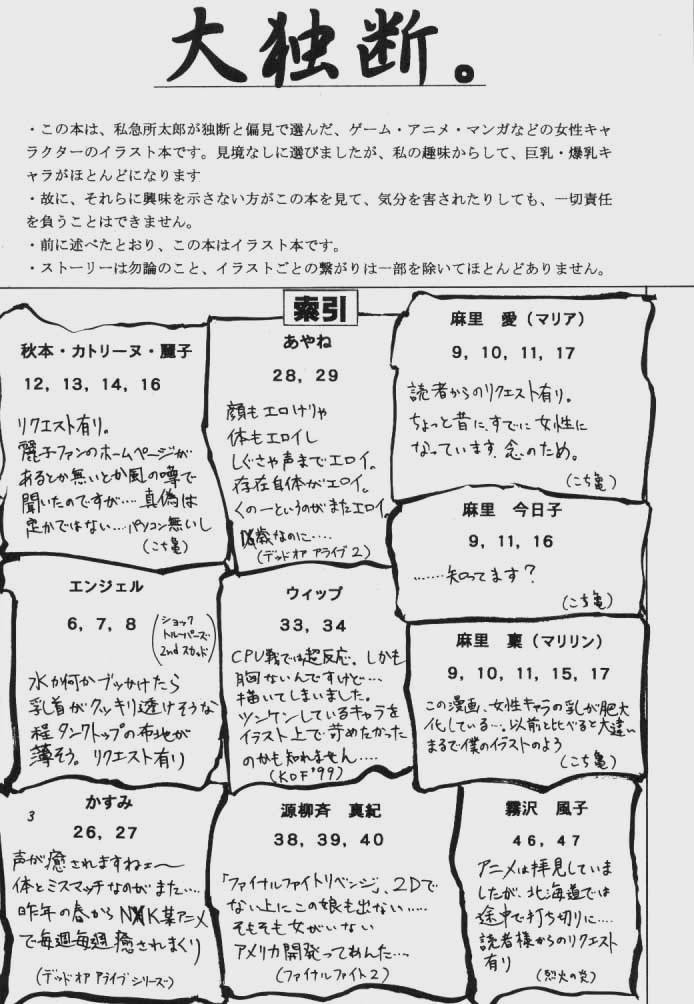 大独断。
・この本は、私急所太郎が独断と偏見で選んだ、ゲーム・アニメ・マンガなどの女性キャ
ラクターのイラスト本です。見境なしに選びましたが、私の趣味からして、巨乳・爆乳キ
ャラがほとんどになります
・故に、それらに興味を示さない方がこの本を見て、気分を害されたりしても、一切責任
を負うことはできません。
・前に述べたとおり、この本はイラスト本です。
・ストーリーは勿論のこと、イラストごとの繋がりは一部を除いてほとんどありません。
索引
秋本・カトリーヌ・麗子
12, 13, 14, 16
リクエスト有り。
麗子ファンのホームページが
あるとか無いとか風の噂で
聞いたのですが…. 真偽は
定かではない…パソコン無いし
(こち亀)
あやね
28, 29
顔もエロけりゃ
体もエロイし
しぐさや声までエロイ。
存在自体がエロイ。
くの一というのがまたエロイ。
歳なのに….
(デッドオアアライブ2)
麻里 愛(マリア)
9, 10, 11, 17
読者からのリクエスト有り。
ちょっと昔に、すでに女性に
なっています. 念のため。
(こち亀)
麻里 今日子
9, 11, 16
……知ってます?
(こち亀)
エンジェル
6, 7, 8
(ショック
トルーパーズ
2nd スカッド)
水か何かブッかけたら
乳首がクッキリ透けそうな
程タンクトップの布地が
薄そう。リクエスト有り
ウィップ
33, 34
CPU戦では超反応、しかも
胸ないんですけど…
描いてしまいました。
ツンケンしているキャラを
イラスト上で苛めたかった
のかも知れません….
(KOF'99)
麻里 稟(マリリン)
9, 10, 11, 15, 17
この漫画、女性キャラの乳が肥大
化している…. 以前と比べると大違い
まるで僕のイラストのよう
(こち亀)
3
かすみ
26, 27
声が癒されますねェ〜
体とミスマッチなのがまた….
昨年の春からNXK某アニメ
で毎週毎週癒されまくり
(デッドオアアライブシリーズ)
源柳斉 真紀
38, 39, 40
「ファイナルファイトリベンジ」、2Dで
ない上にこの娘も出ない….
そもそも女がいない
アメリカ開発ってあんた…。
(ファイナルファイト2)
霧沢 風子
46, 47
アニメは拝見していま
したが、北海道では
途中で打ち切りに….
読者様からのリクエスト
有り
(烈火の炎)